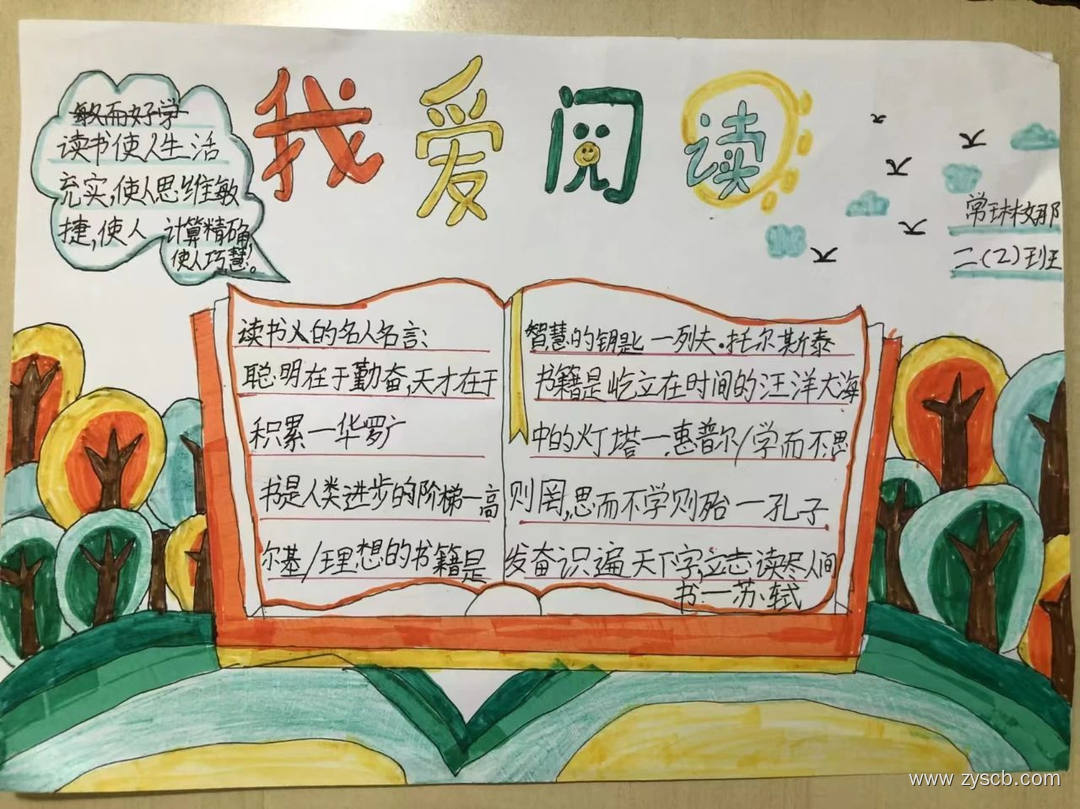 我爱阅读
敏而好学
读书使人生活
充实,使人思维敏
捷,使人 计算精确,
使人巧慧。
二(2)班
读书人的名人名言:
聪明在于勤奋,天才在于
积累一华罗广
书是人类进步的阶梯一高
尔基/理想的书籍是
智慧的钥匙一列夫·托尔斯泰
书籍是屹立在时间的汪洋大海
中的灯塔一惠普尔/学而不思
则罔,思而不学则殆一孔子
发奋识遍天下字,立志读尽人间
书一苏轼
www.zyscb.com